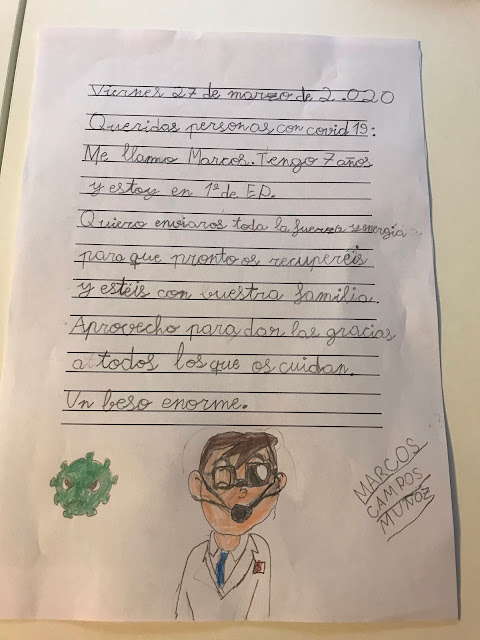 Viernes 27 de marzo de 2.020
Queridas personas con covid 19:
Me llamo Marcos. Tengo 7 años
y estoy en 1º de EP.
Quiero enviaros toda la fuerza y energía
para que pronto os recuperéis
y estéis con vuestra familia.
Aprovecho para dar las gracias
a todos los que os cuidan.
Un beso enorme.
MARCOS
CAMPOS
MUÑOZ